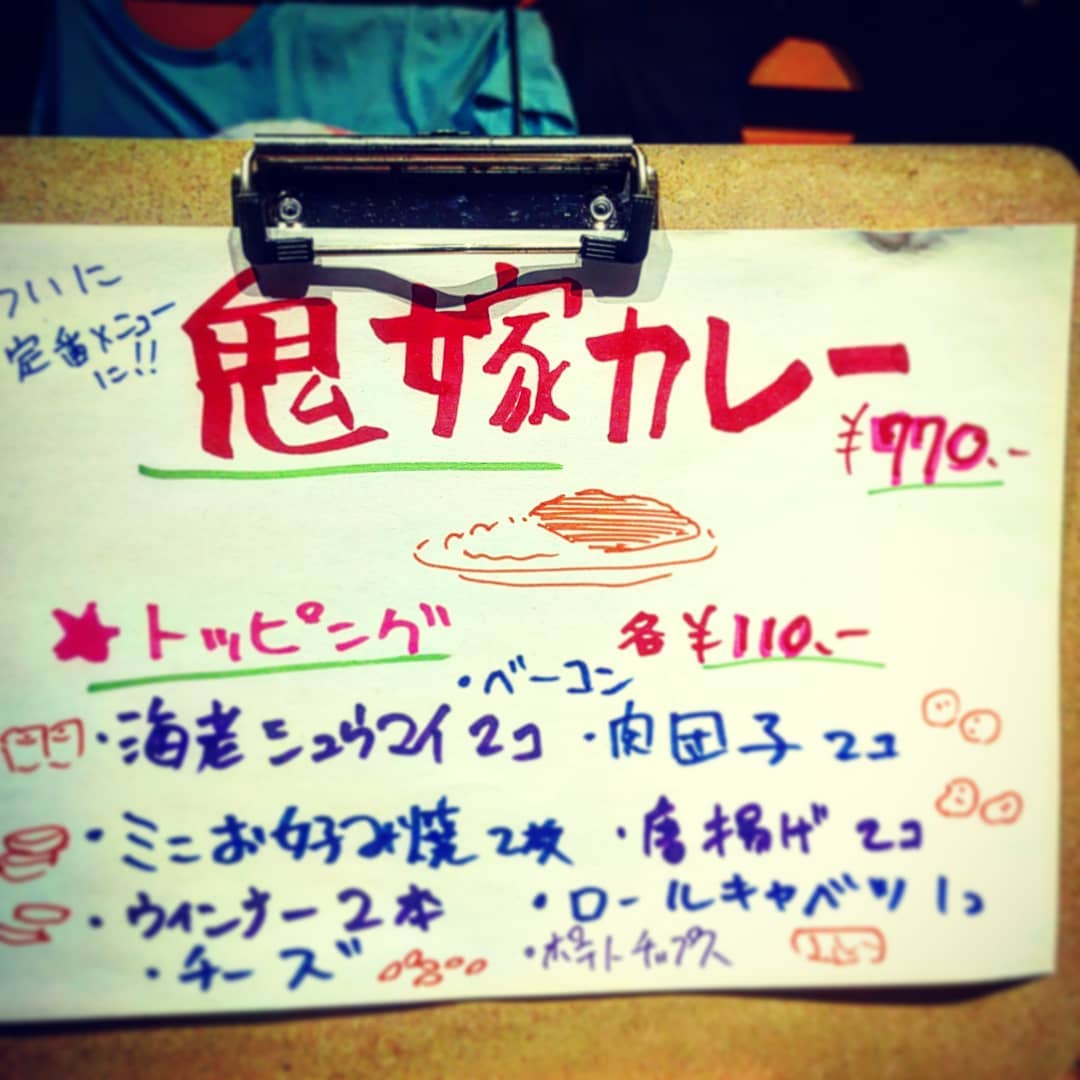 ついに
定番メニュー
に!!
鬼嫁カレー
¥770.-
★トッピング 各¥110.-
・ベーコン
・海老シュウマイ2コ ・肉団子2コ
・ミニお好み焼2枚 ・唐揚げ2コ
・ウインナー2本 ・ロールキャベツ1コ
・チーズ ・ポテトチップス